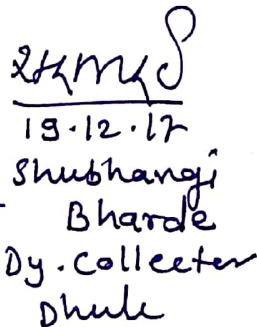 19.12.17
Shubhangi
Bharde
Dy. Collecter
Dhule